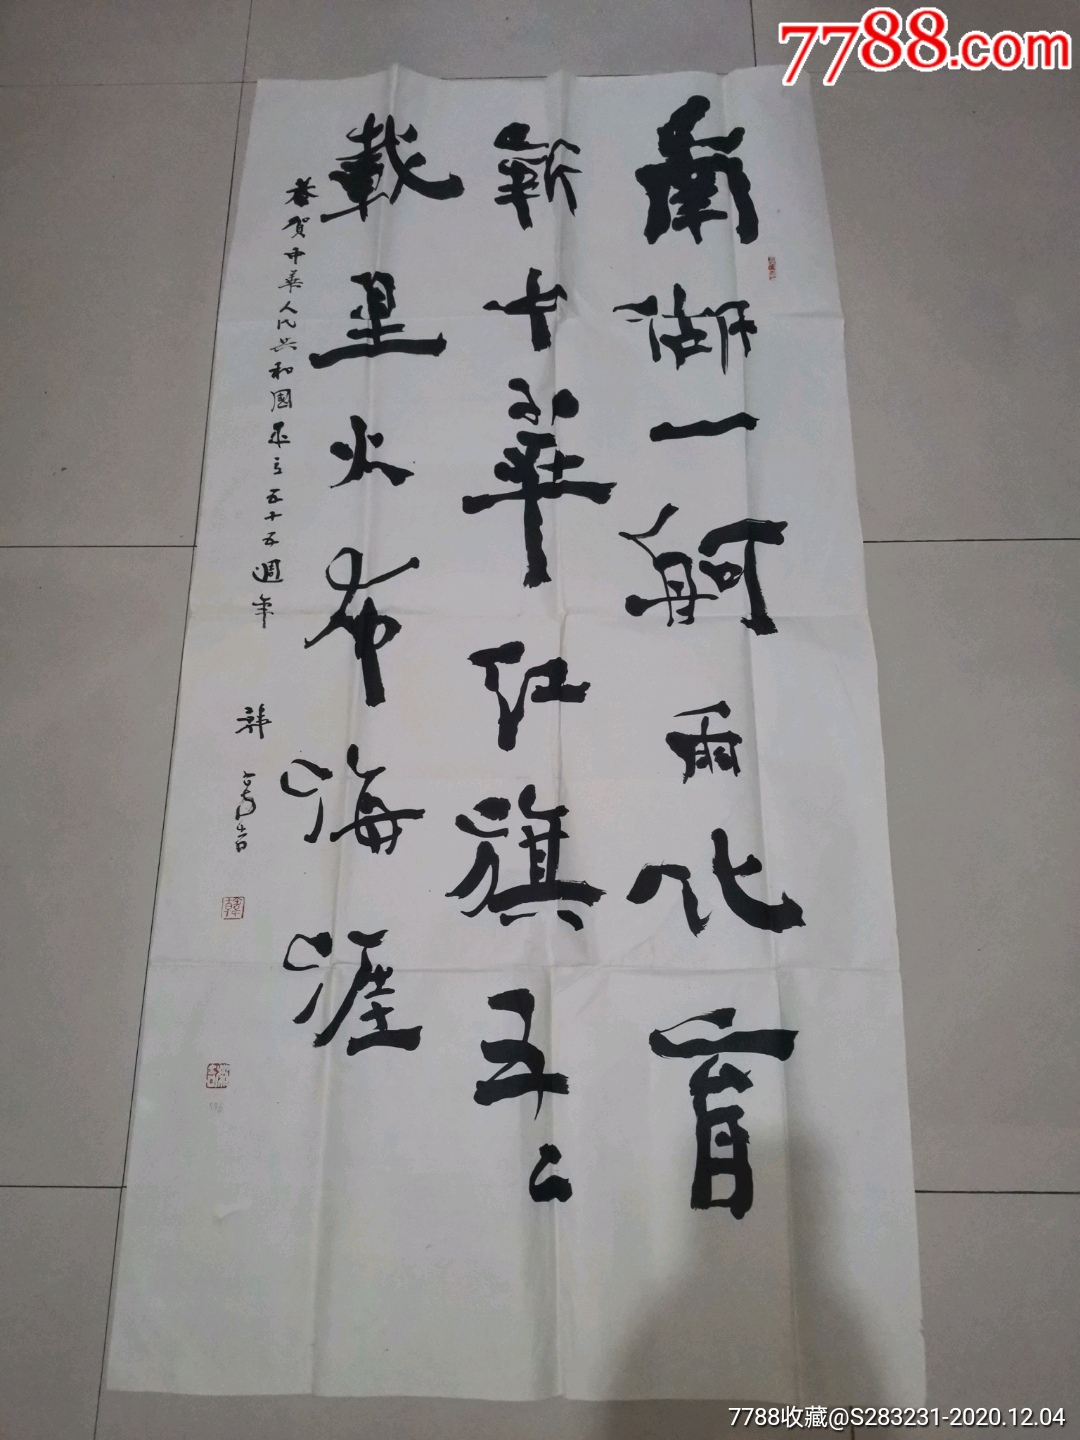 7788.com
南湖一舸雨化育
新中華红旗五〻
載星火布海涯
恭賀中華人民共和國成立五十五週年
韩
7788收藏@S283231-2020.12.04